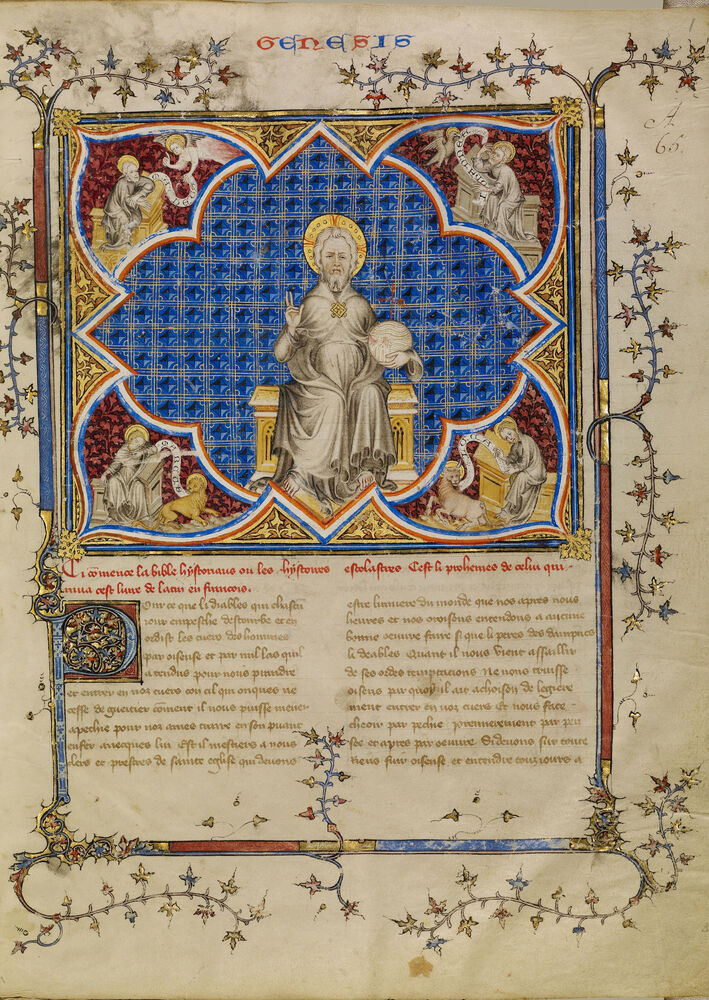 GENESIS
A
65.
Ci cõmence la bible hÿstoriaus ou les hÿstoires escolastres C'est li prohemes de celui qui
mist cest liure de latin en francois.
Pour ce que li diables qui chascũ
iour empesche destourbe et en
ordist les cuers des hommes
par oiseuse et par mil las quil
a tendus pour nous prandre
et entrer en noz cuers con cil qui onques ne
cesse de guetier cõment il nous puisse mener
a pechie pour noz ames traire en son puant
enfer auecques lui Est il mestiers a nous
clers et prestres de sainte eglise qui deuons
estre lumiere du monde que nos apres nous
heures et nos oroisons entendons a aucune
bonne oeuure faire si que li peres des dampnes
li deables Quant il nous vient assaillir
de ses ordes temptacions Ne nous truisse
oiseus par quoy il ait achoison de legiere
ment entrer en noz cuers Et nous face
cheoir par pechie premierement par pen
see et apres par oeuure Si deuons sur toute
riens fuir oiseuse et entendre touz iours a